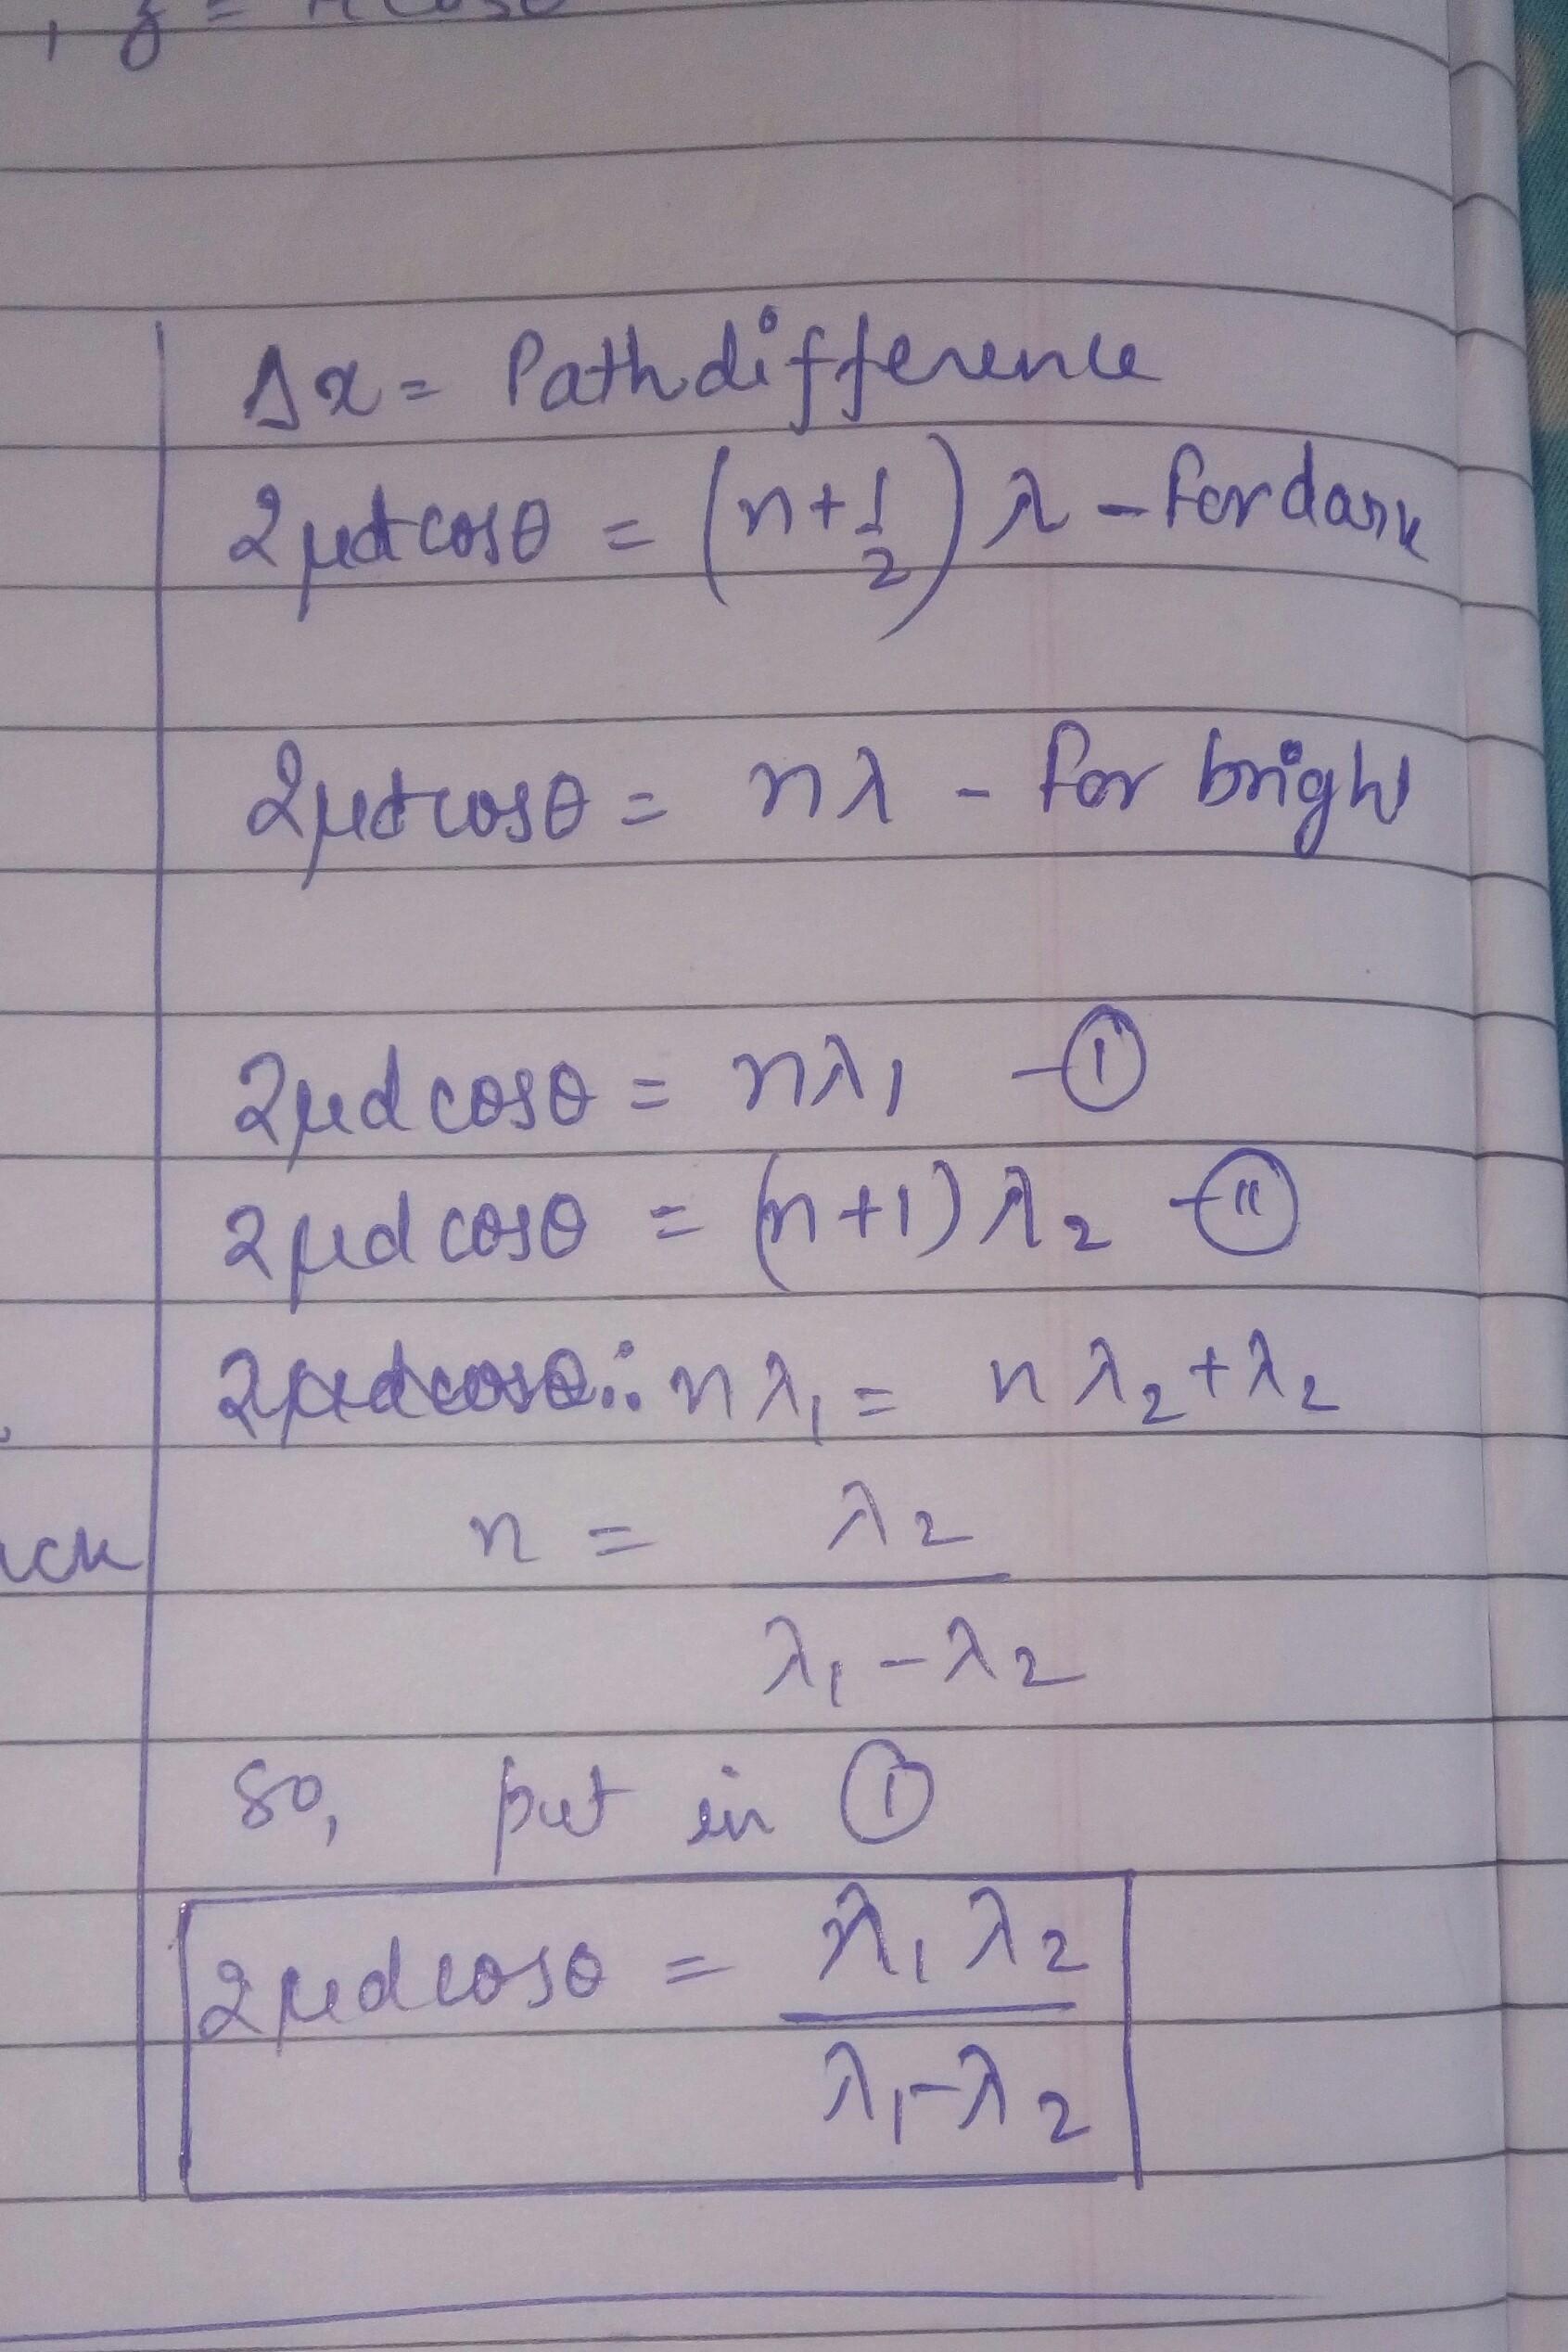 , z =
Δx = Path difference
2μt cosθ = (n+1/2) λ - for dark
2μt cosθ = nλ - for bright
2μd cosθ = nλ₁ - ①
2μd cosθ = (n+1) λ₂ - ⑪
2μd cosθ ∴ nλ₁ = nλ₂ + λ₂
n = λ₂
λ₁ - λ₂
so, put in ①
2μd cosθ = λ₁ λ₂
λ₁ - λ₂